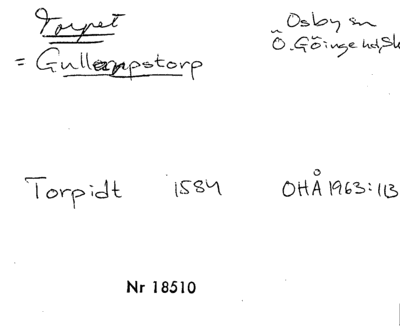 Torpet
= Gullarpstorp
Osby sn
Ö. Göinge hd, Sk
Torpidt 1584 OHÅ 1963:113
Nr 18510